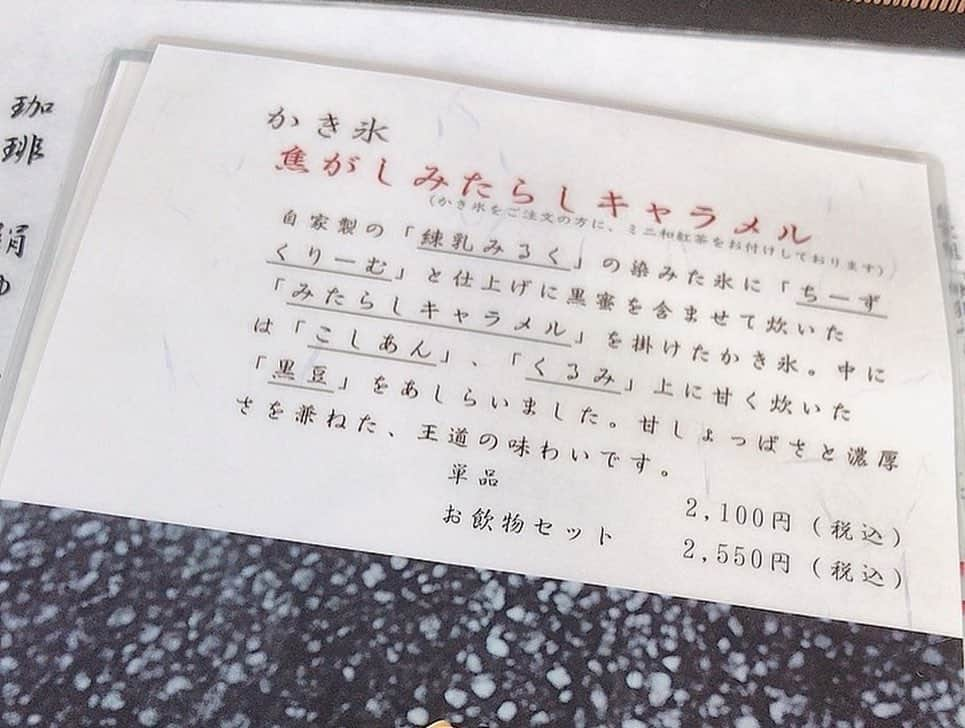 珈
琲
絹
かき氷
焦がしみたらしキャラメル
(かき氷をご注文の方に、ミニ和紅茶をお付けしております)
自家製の「練乳みるく」の染みた氷に「ちーず
くりーむ」と仕上げに黒蜜を含ませて炊いた
「みたらしキャラメル」を掛けたかき氷。中に
は「こしあん」、「くるみ」上に甘く炊いた
「黒豆」をあしらいました。甘しょっぱさと濃厚
さを兼ねた、王道の味わいです。
単品 2,100円(税込)
お飲物セット 2,550円(税込)